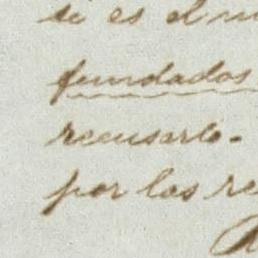 se es el
fundados
recusarlo.
por las re